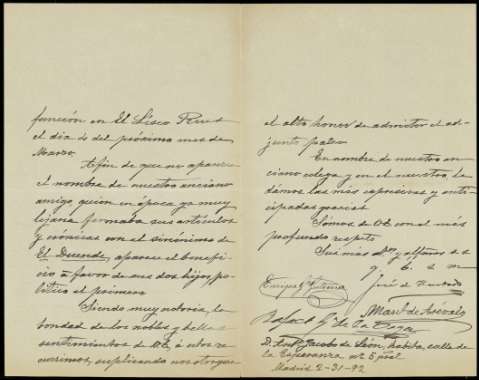 función en El Liceo Rius
el día 6 del próximo mes de
Marzo.
Afin de que no aparezca
el nombre de nuestro anciano
amigo quien en época ya muy
lejana firmaba sus artículos
y crónicas con el sinónimo de
El Duende, aparece el benefi-
cio a favor de sus dos hijos, po-
lítico el primero.
Siendo muy notoria, la
bondad de los nobles y bellos
sentimientos de a ellos re-
currimos, suplicando nos otorgue
el alto honor de admitir el ad-
junto palco
En nombre de nuestro an-
ciano colega y en el nuestro le
damos las más expresivas y anti-
cipadas gracias
Somos de con el más
profundo respeto
Sus más y affmos s s
q. b. s m
José de
Manl. de Arévalo
Rafael Gª de la
D. Jacobo de León, habita, calle de
la Esperanza nº 5 pral
Madrid 2-31-92